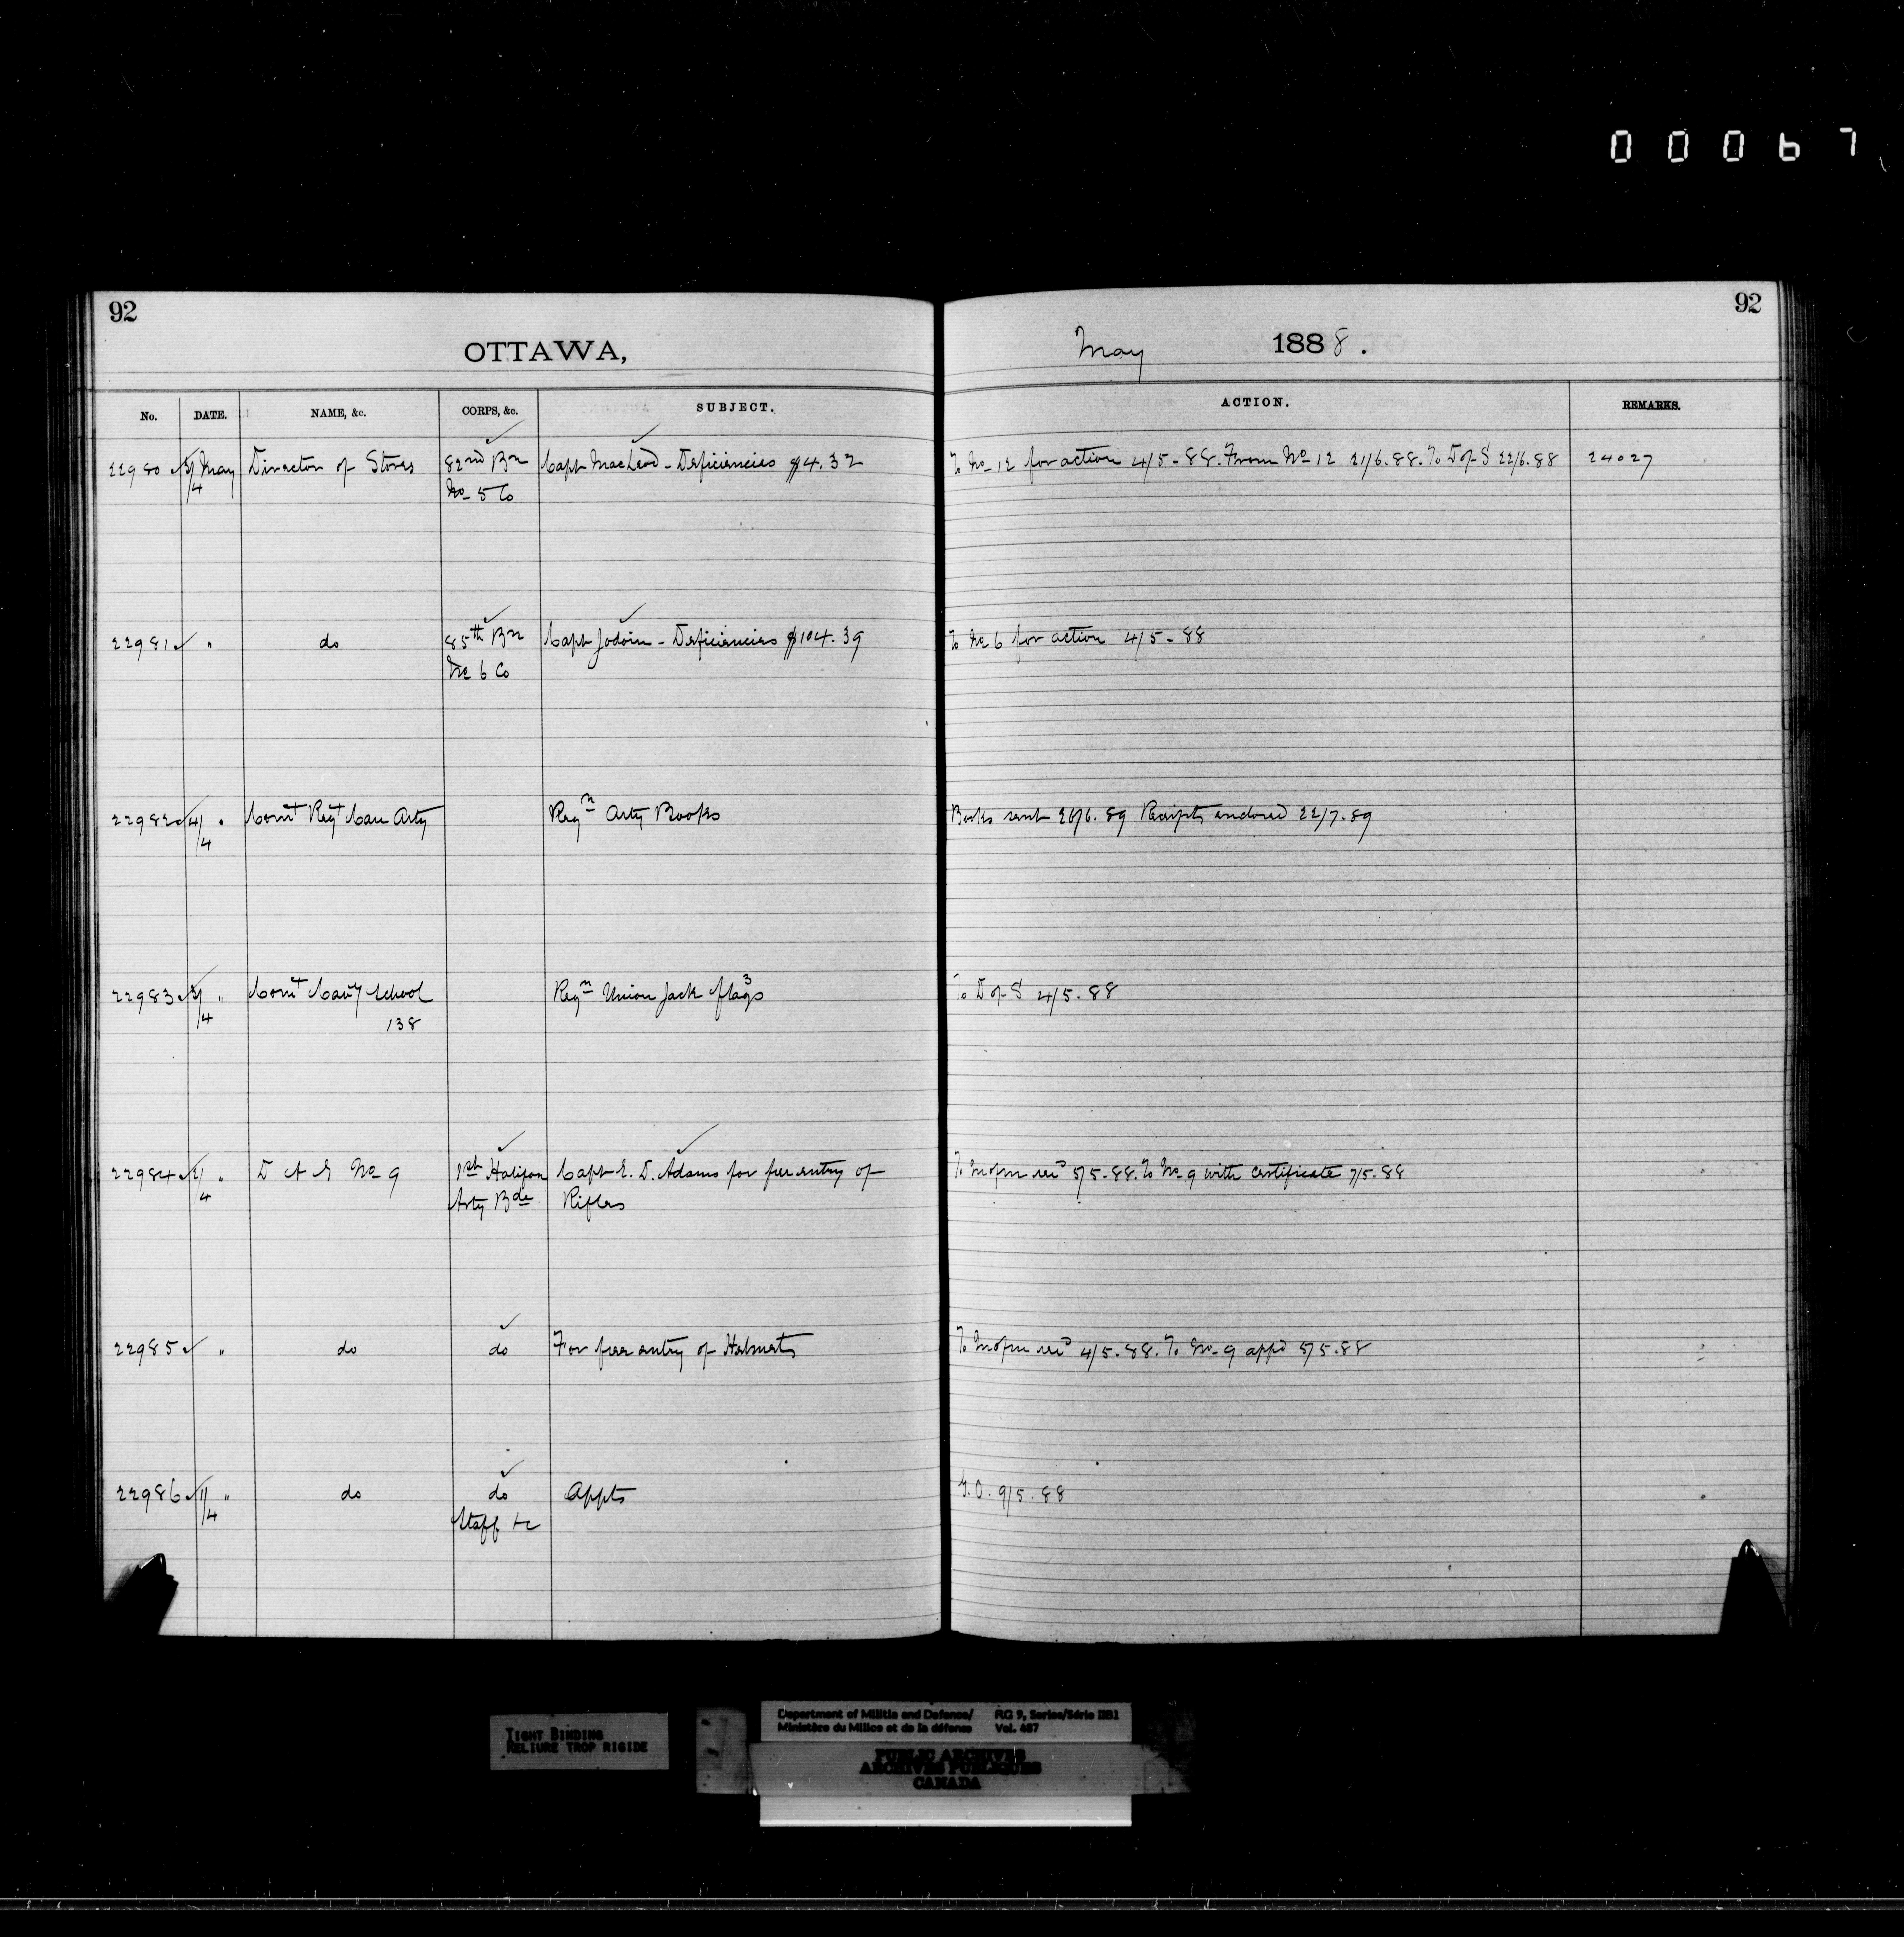 00067
92
OTTAWA,
No. DATE. NAME, &c. CORPS, &c. SUBJECT.
22980 3/4 May Director of Stores 82nd Bn Capt MacLeod - Deficiencies $4.32
No 5 Co
22981 " do 85th Bn Capt Jodoin - Deficiencies $104.39
No 6 Co
22982 4/4 " Comt Regt Can Arty Reqn Arty Books
22983 3/4 " Comt Cavy School Reqn Union Jack flags 3
138
22984 /4 " D A G No 9 1st Halifax Capt E. D. Adams for free entry of
Arty Bde Rifles
22985 " do do For free entry of Helmets
22986 1/4 " do do Appts
Staff &c
92
May 1888.
ACTION. REMARKS.
To No 12 for action 4/5-88. From No 12 21/6.88. To D of S 22/6.88 24027
To No 6 for action 4/5-88
Books sent 26/6.89 Receipts endored 22/7.89
To D of S 4/5.88
To 5/5.88. To No 9 with certificate 7/5.88
To 4/5.88. To No 9 appd 5/5.88
G.O. 9/5.88
TIGHT BINDING
RELIURE TROP RIGIDE
Department of Militia and Defence/ RG 9, Series/Série IIB1
Ministère du Milice et de la défense Vol. 487
PUBLIC ARCHIVES
ARCHIVES PUBLIQUES
CANADA